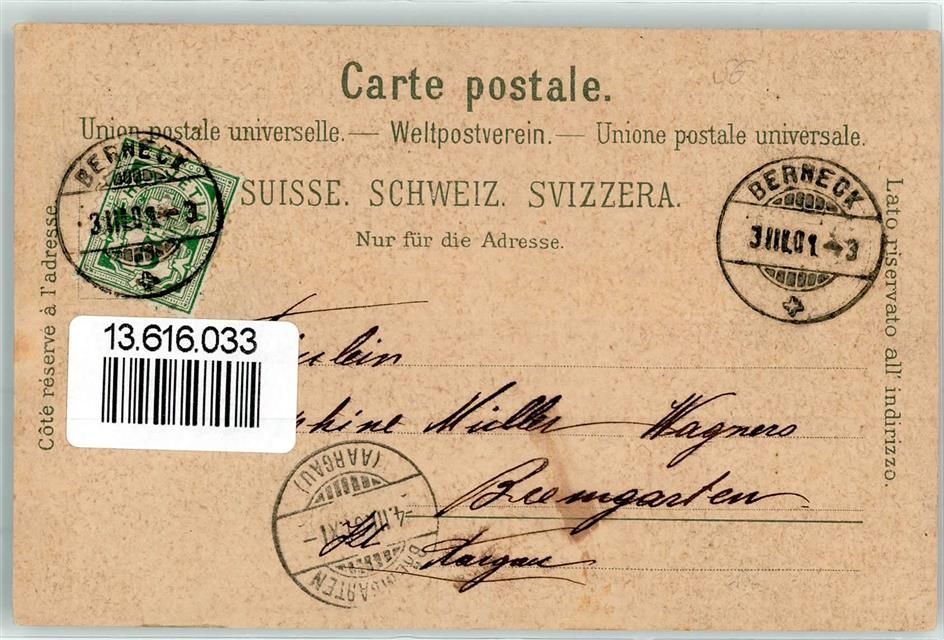 56
Carte postale.
Union postale universelle. — Weltpostverein. — Unione postale universale.
SUISSE. SCHWEIZ. SVIZZERA.
Nur für die Adresse.
Côté réservé à l'adresse.
Lato riservato all' indirizzo.
BERNECK
3 III.01.-3
HELVETIA
BERNECK
3 III.01.-3
13.616.033
Müller Wagners
Bremgarten
Kt Aargau
BREMGARTEN
-4.III.01.XI-
(AARGAU)